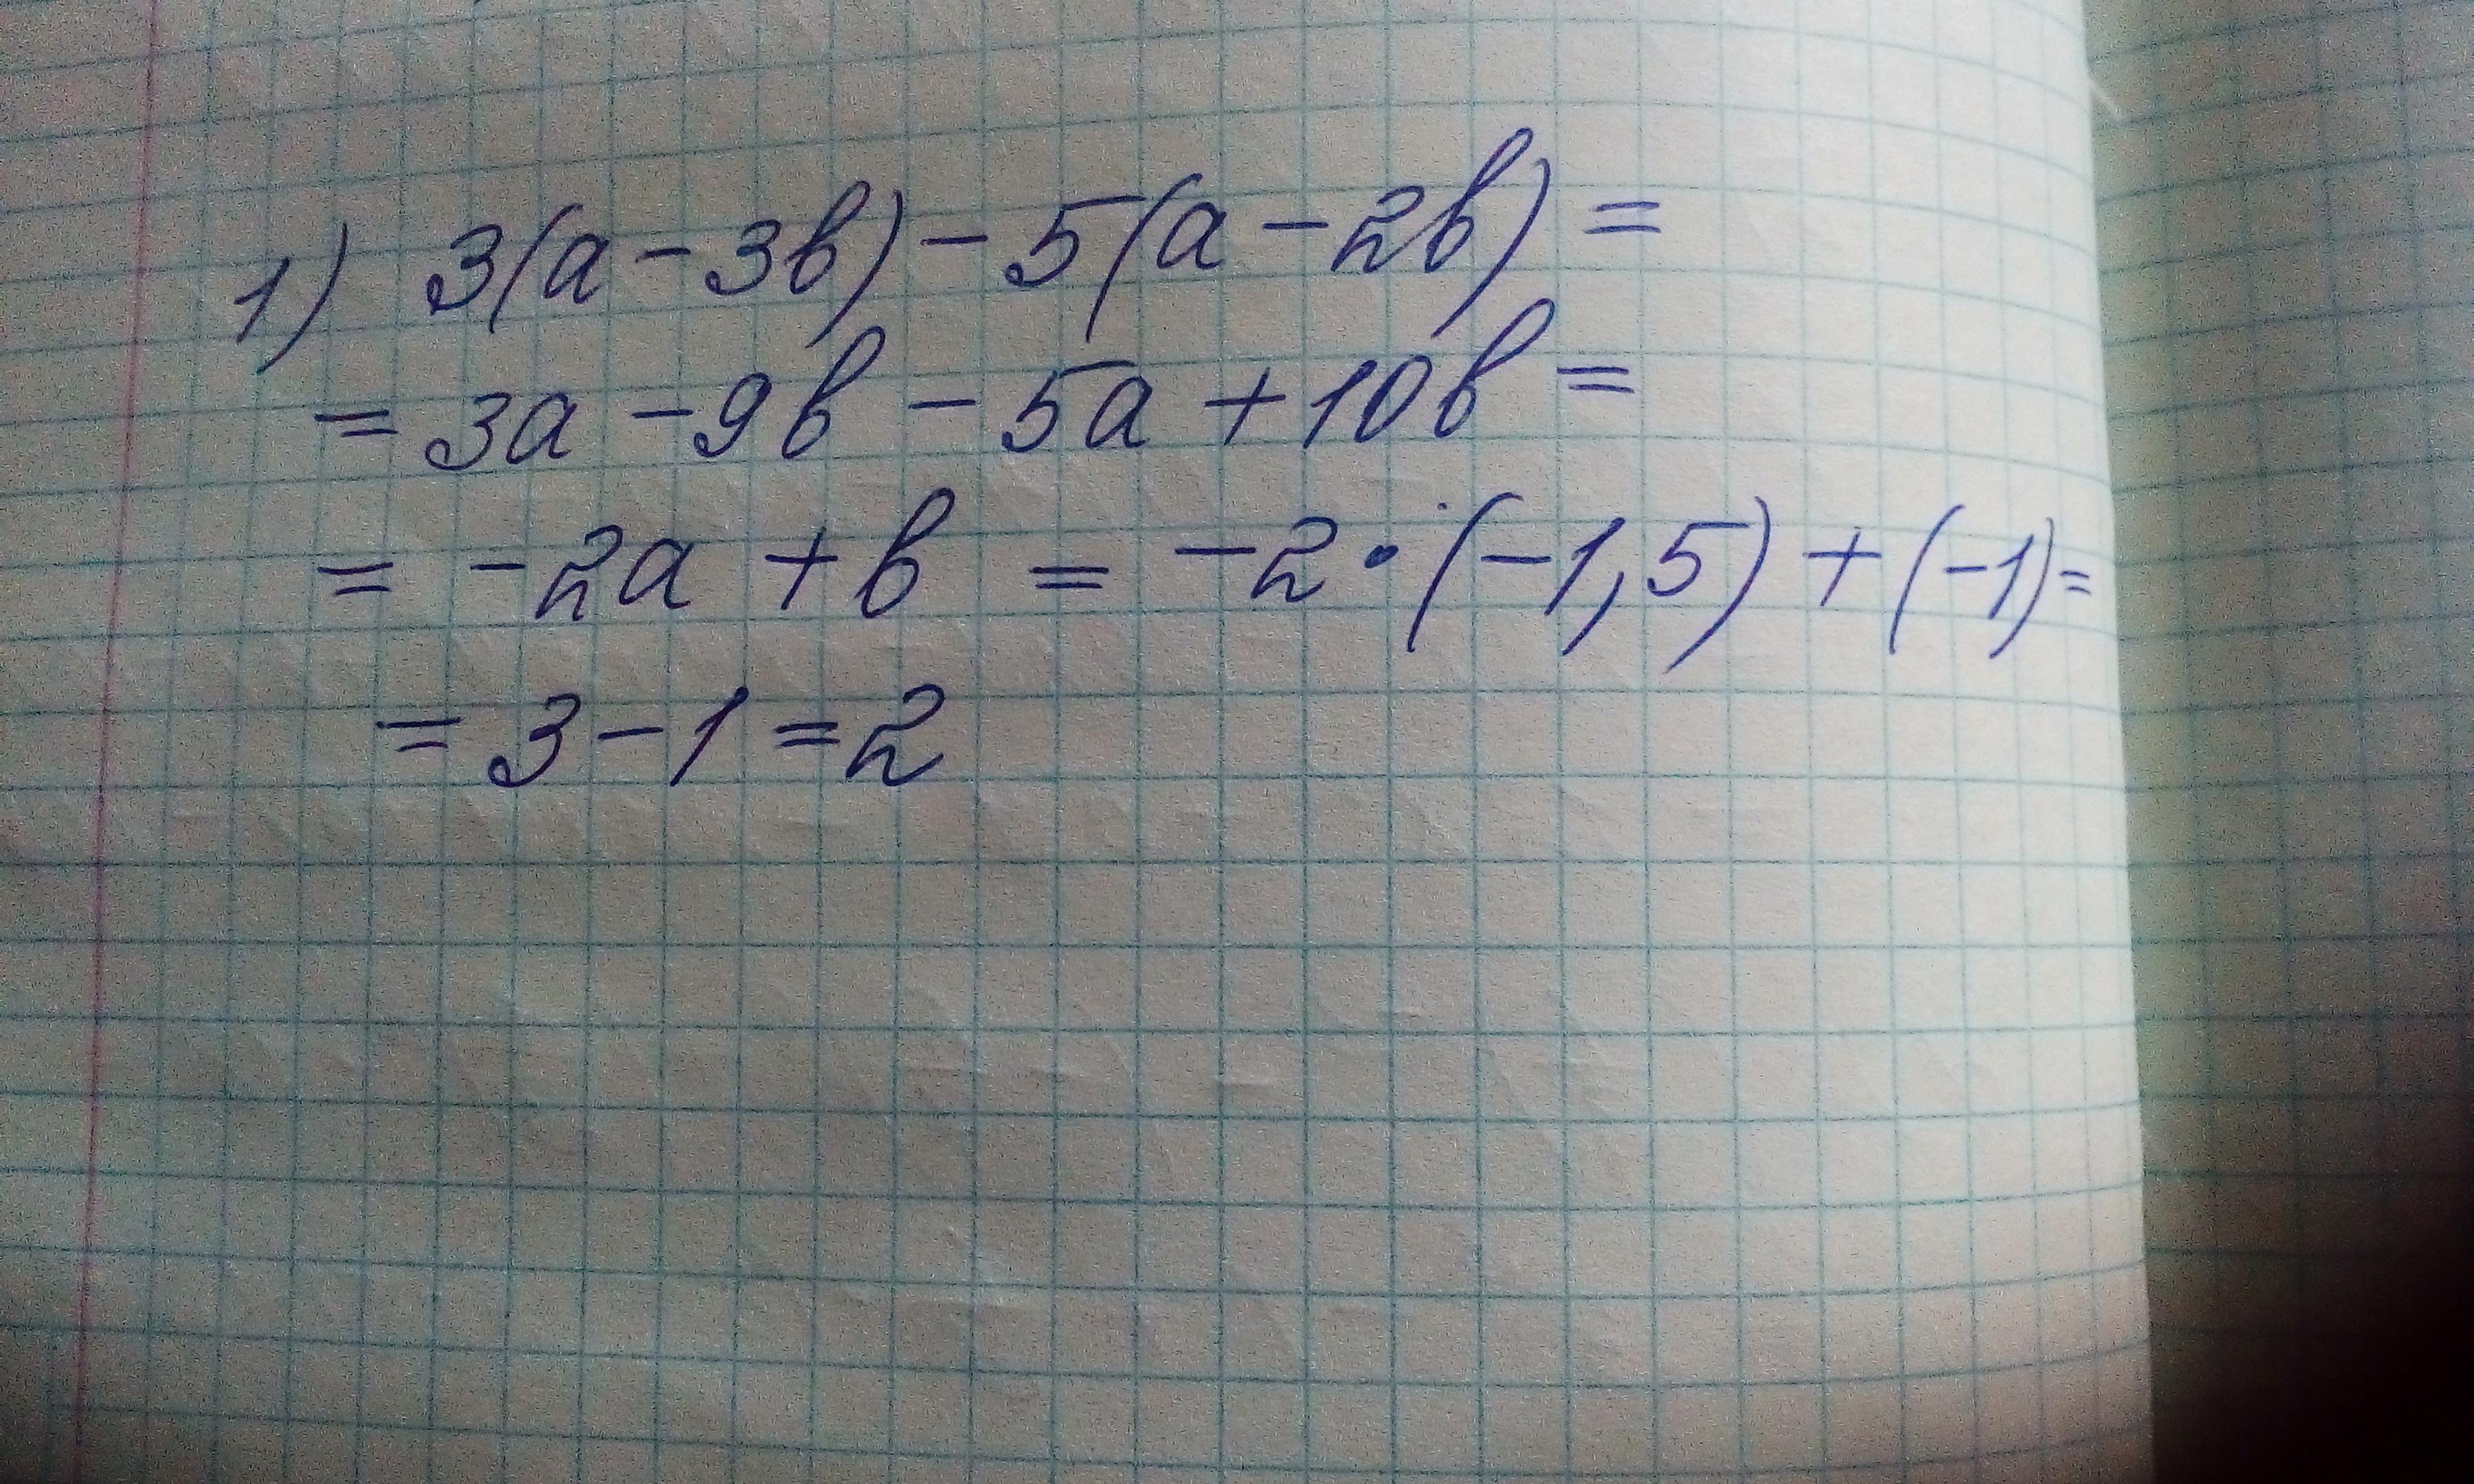 1) 3(a-3b)-5(a-2b)=
=3a-9b-5a+10b=
=-2a+b=-2•(-1,5)+(-1)=
=3-1=2